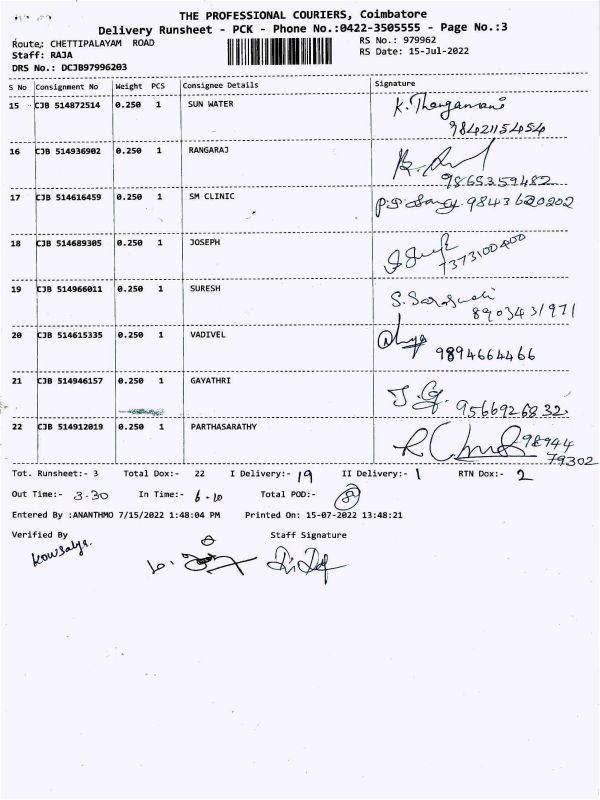 THE PROFESSIONAL COURIERS, Coimbatore
Delivery Runsheet - PCK - Phone No.:0422-3505555 - Page No.:3
Route: CHETTIPALAYAM ROAD RS No.: 979962
Staff: RAJA RS Date: 15-Jul-2022
DRS No.: DCJB97996203
S No Consignment No Weight PCS Consignee Details Signature
15 CJB 514872514 0.250 1 SUN WATER K. Thangamani
9842115454
16 CJB 514936902 0.250 1 RANGARAJ
9865359482
17 CJB 514616459 0.250 1 SM CLINIC 9843620202
18 CJB 514689305 0.250 1 JOSEPH
7373100400
19 CJB 514966011 0.250 1 SURESH S. Saraswati
8903431971
20 CJB 514615335 0.250 1 VADIVEL
9894664466
21 CJB 514946157 0.250 1 GAYATHRI J. G.
9566926832.
22 CJB 514912019 0.250 1 PARTHASARATHY 98944
79302
Tot. Runsheet:- 3 Total Dox:- 22 I Delivery:- 19 II Delivery:- 1 RTN Dox:- 2
Out Time:- 3.30 In Time:- 6.10 Total POD:-
Entered By :ANANTHMO 7/15/2022 1:48:04 PM Printed On: 15-07-2022 13:48:21
Verified By Staff Signature
Kowsalya.